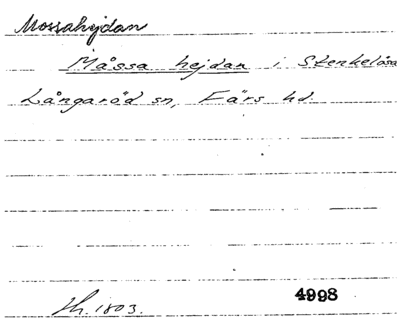 Mossahejdan
Måssa hejdan i Stenkelösa
Långaröd sn, Färs hd.
lh. 1803.
4998